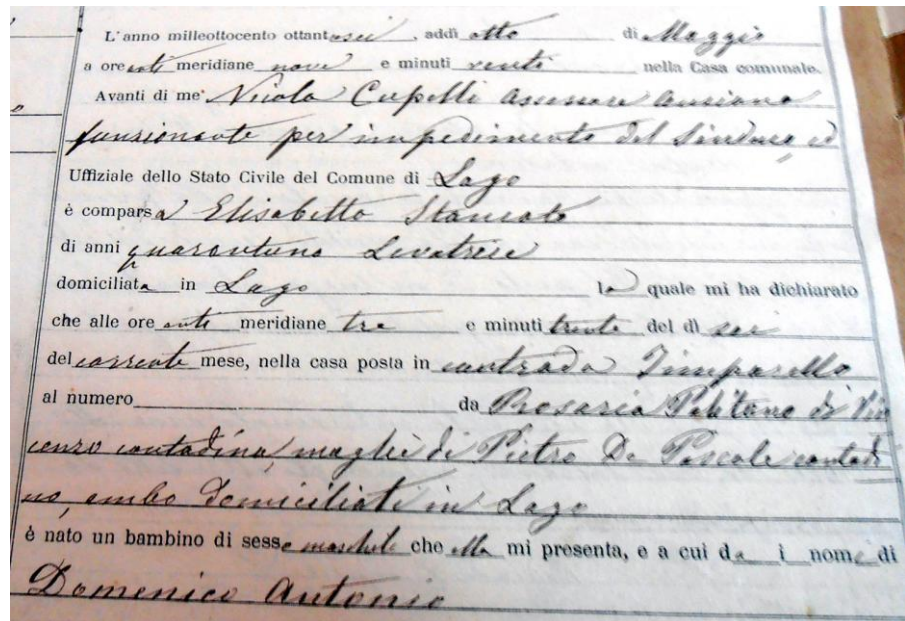 L'anno milleottocento ottantasei, addì otto di Maggio
a ore anti meridiane nove e minuti venti nella Casa comunale.
Avanti di me Nicola Cupelli Assessore Anziano
funzionante per impedimento del Sindaco ed
Uffiziale dello Stato Civile del Comune di Lago
è comparsa Elisabetta Stancate
di anni quarantuno Levatrice
domiciliata in Lago la quale mi ha dichiarato
che alle ore anti meridiane tre e minuti trenta del dì sei
del corrente mese, nella casa posta in contrada Timparello
al numero da Rosaria Politano di Vin
cenzo contadina, moglie di Pietro De Pascale contadi
no, ambo domiciliati in Lago
è nato un bambino di sesso maschile che ella mi presenta, e a cui da i nomi di
Domenico Antonio